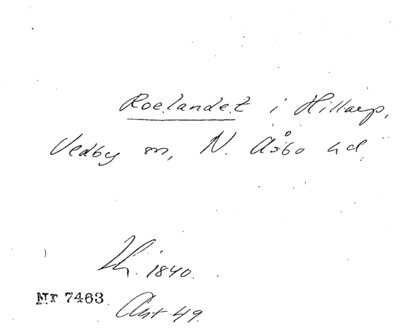 Roelandet i Hillarp,
Vedby sn, N. Åsbo hd
1840.
Nr 7463
49.